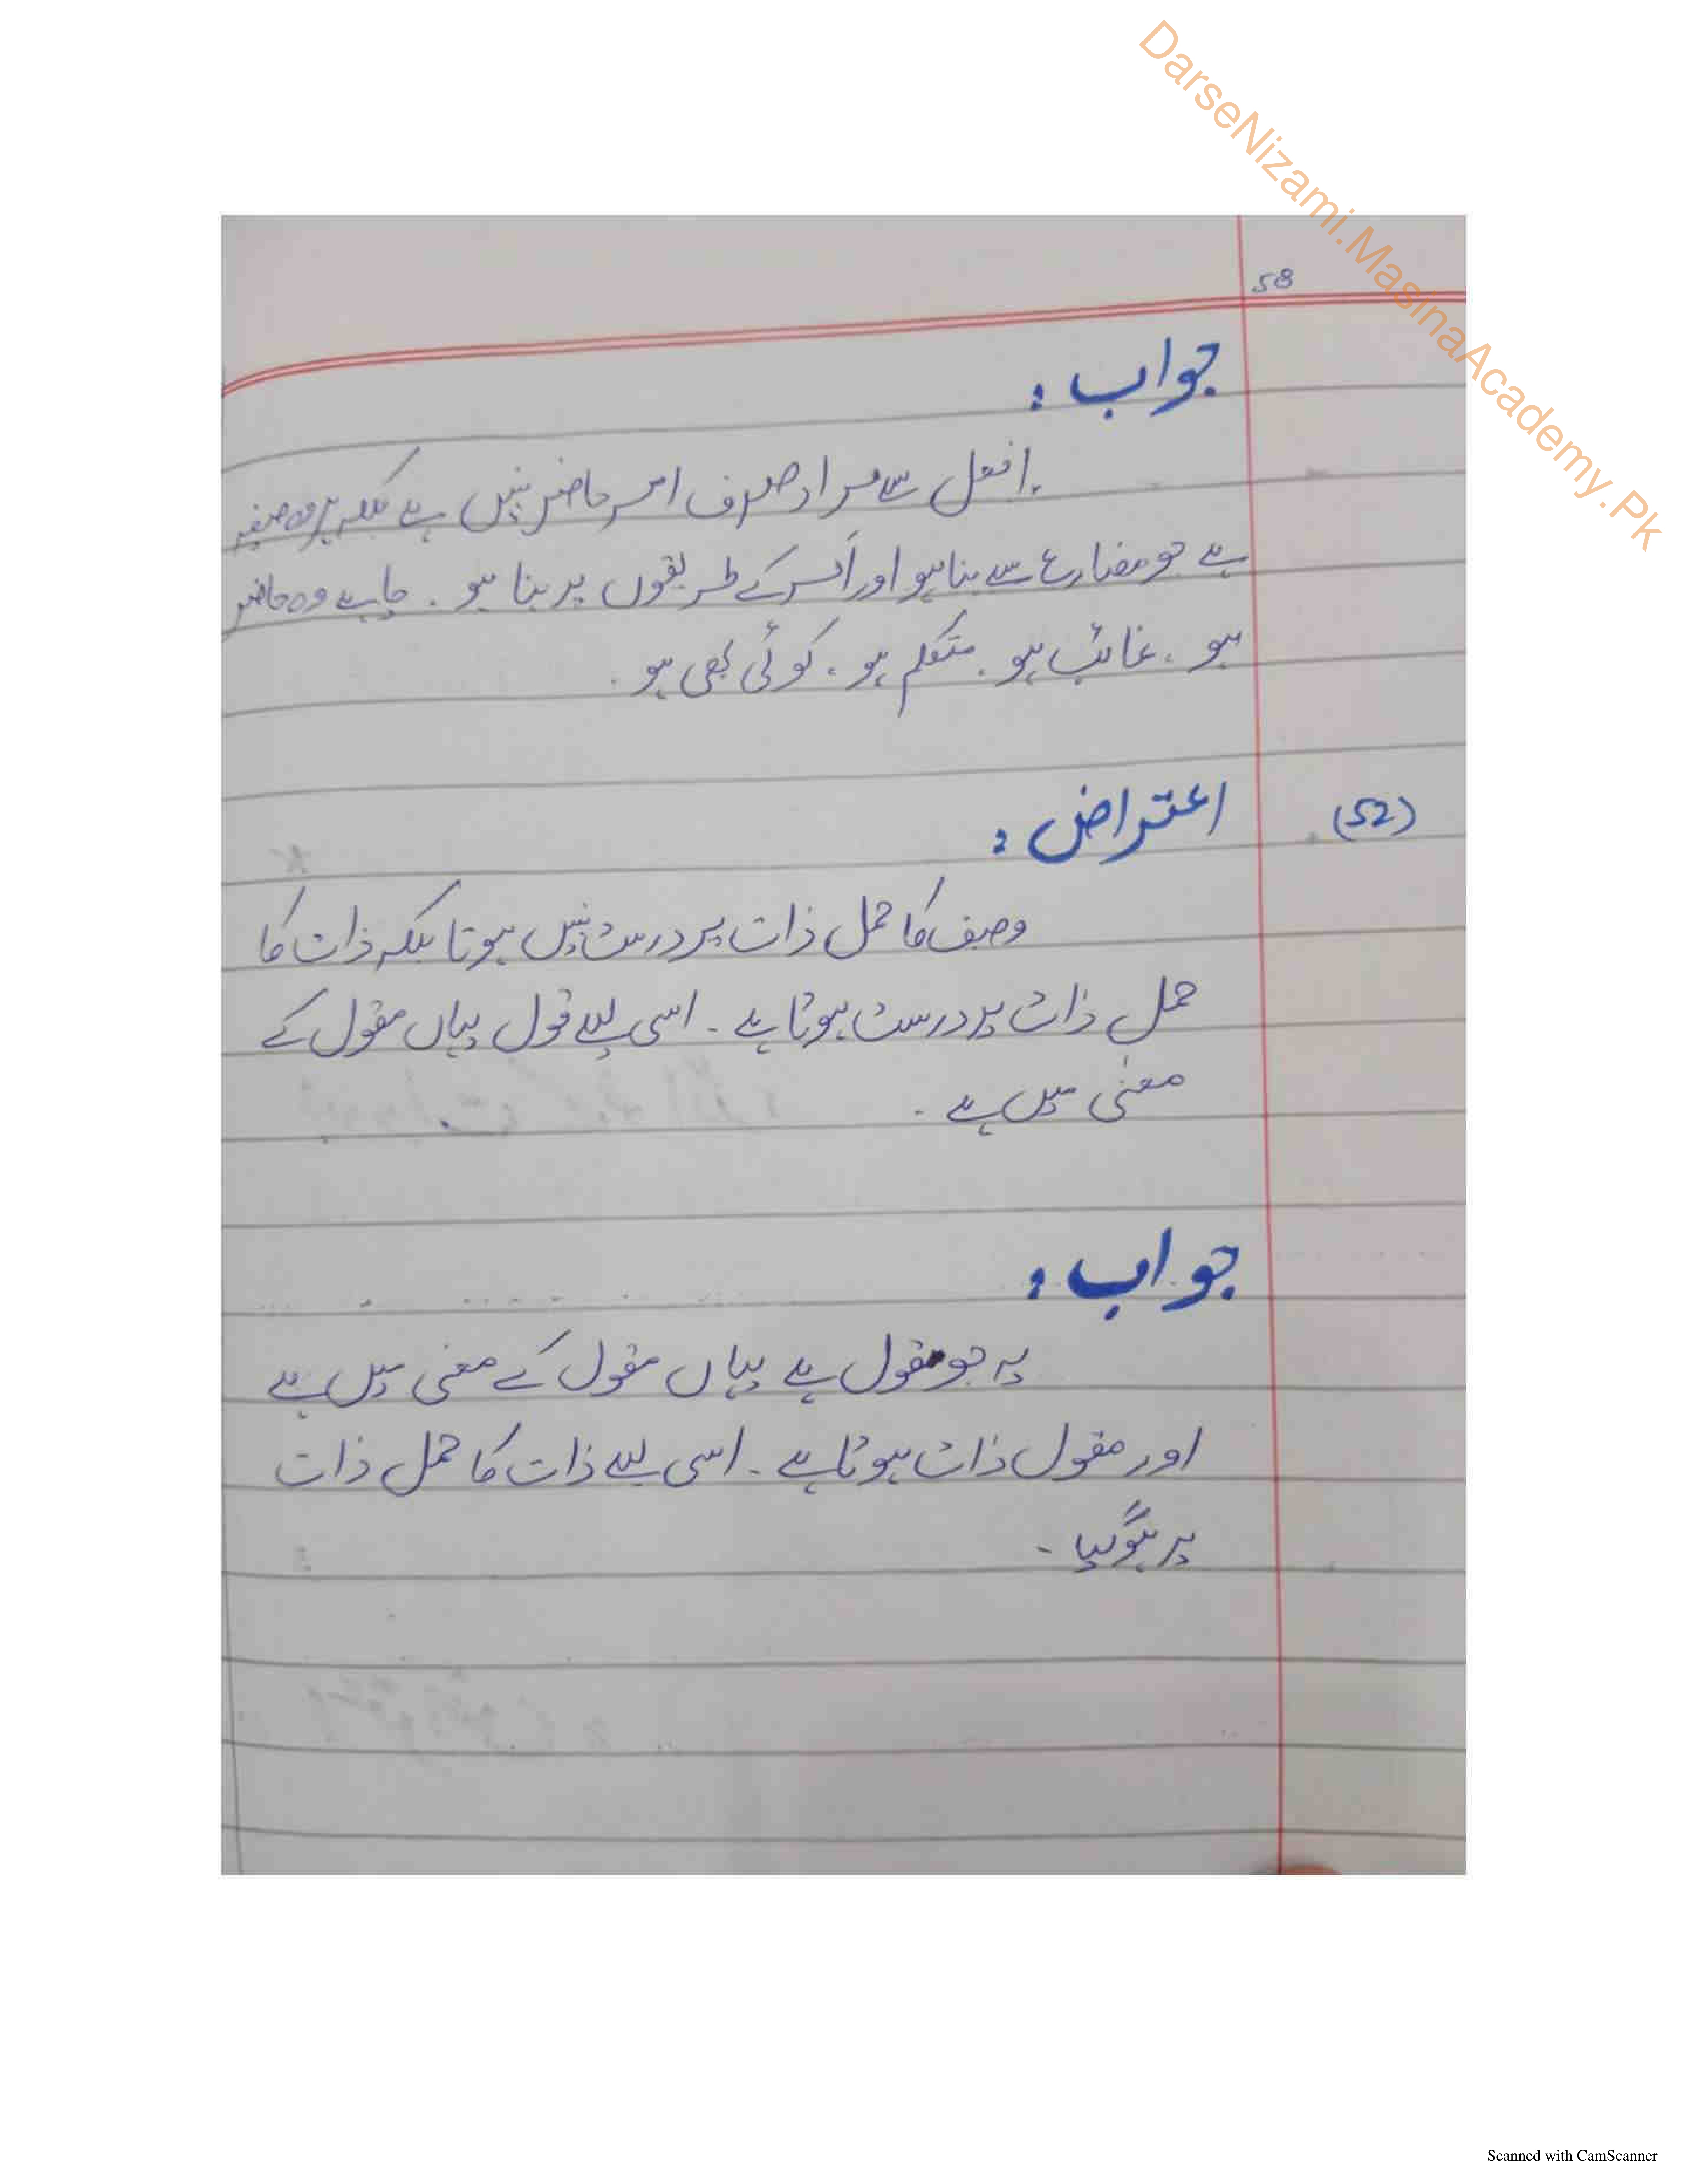 DarseNizami.MasinaAcademy.Pk
58
جواب :
افعل سے مراد صرف امر حاضر نہیں ہے بلکہ ہر وہ صیغہ
ہے جو مضارع سے بنا ہو اور اُسں کے طریقوں پر بنا ہو ۔ چاہے وہ حاضر
ہو ۔ غائب ہو ۔ متکلم ہو ۔ کوئی بھی ہو ۔
(52) اعتراض :
وصف کا حمل ذات پر درست نہیں ہوتا بلکہ ذات کا
حمل ذات پر درست ہوتا ہے ۔ اسی لیے قول یہاں مقول کے
معنی میں ہے ۔
جواب :
یہ جو قول ہے یہاں مقول کے معنی میں ہے
اور مقول ذات ہوتا ہے ۔ اسی لیے ذات کا حمل ذات
پر ہوگیا ۔
Scanned with CamScanner